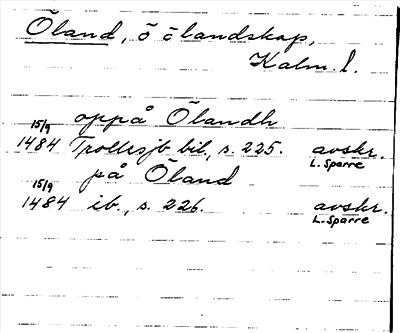 Öland, ö o landskap,
Kalm. l.
oppå Ölandh
15/9
1484 Trollesjb bil., s. 225. avskr.
L. Sparre
på Öland
15/9
1484 ib., s. 226. avskr.
L. Sparre